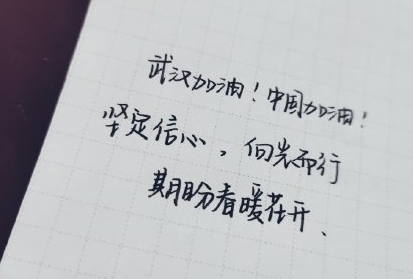 武汉加油！中国加油！
坚定信心，向光而行
期盼春暖花开、